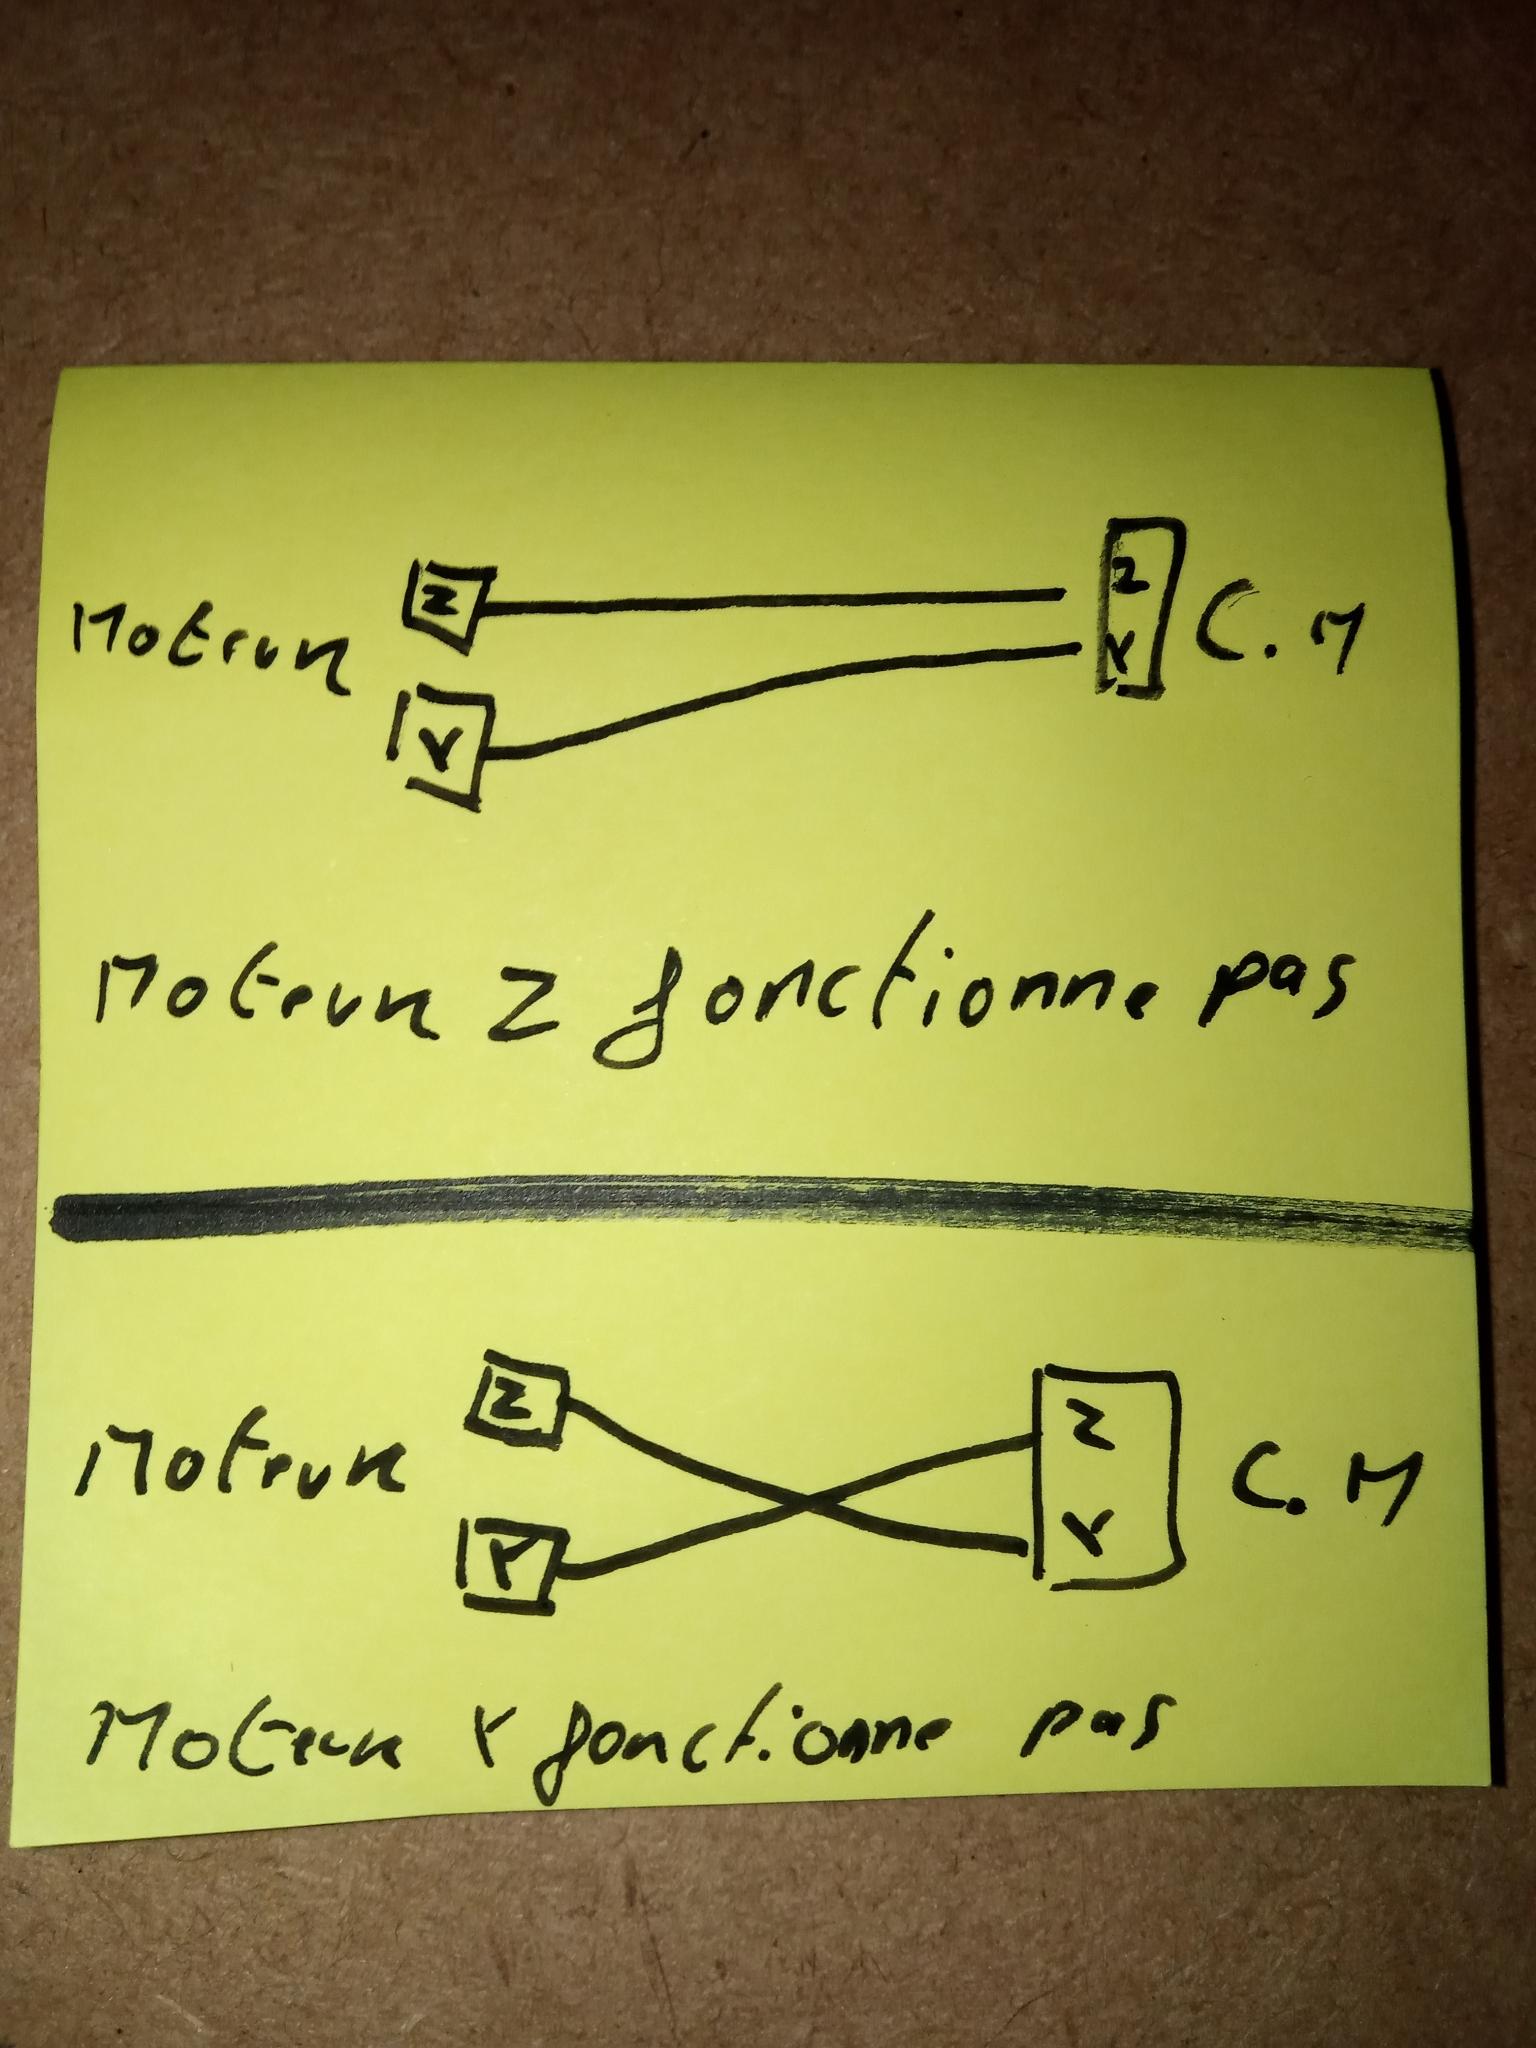 Z
Z
Moteur
C.M
Y
Y
Moteur Z fonctionne pas
Z
Z
Moteur
C.M
Y
Y
Moteur Y fonctionne pas